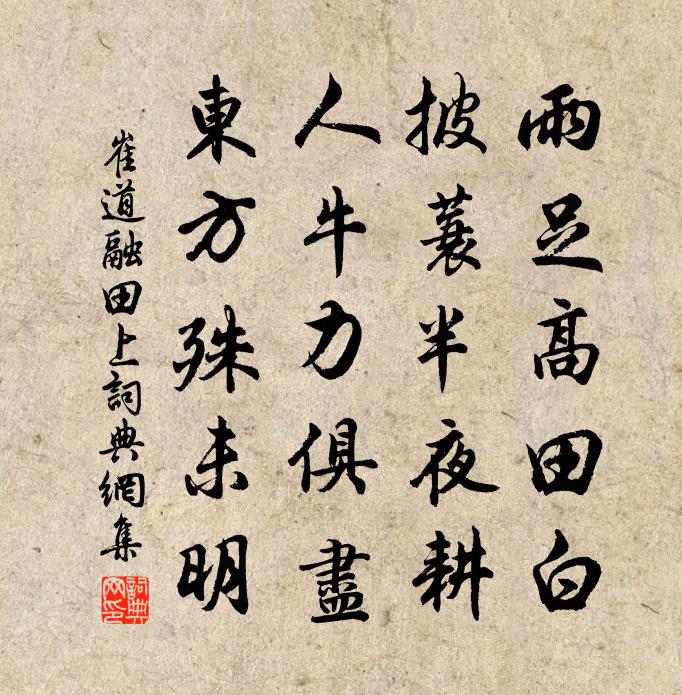 雨足高田白
披蓑半夜耕
人牛力俱盡
東方殊未明
崔道融田上詞典網集
詞典網印